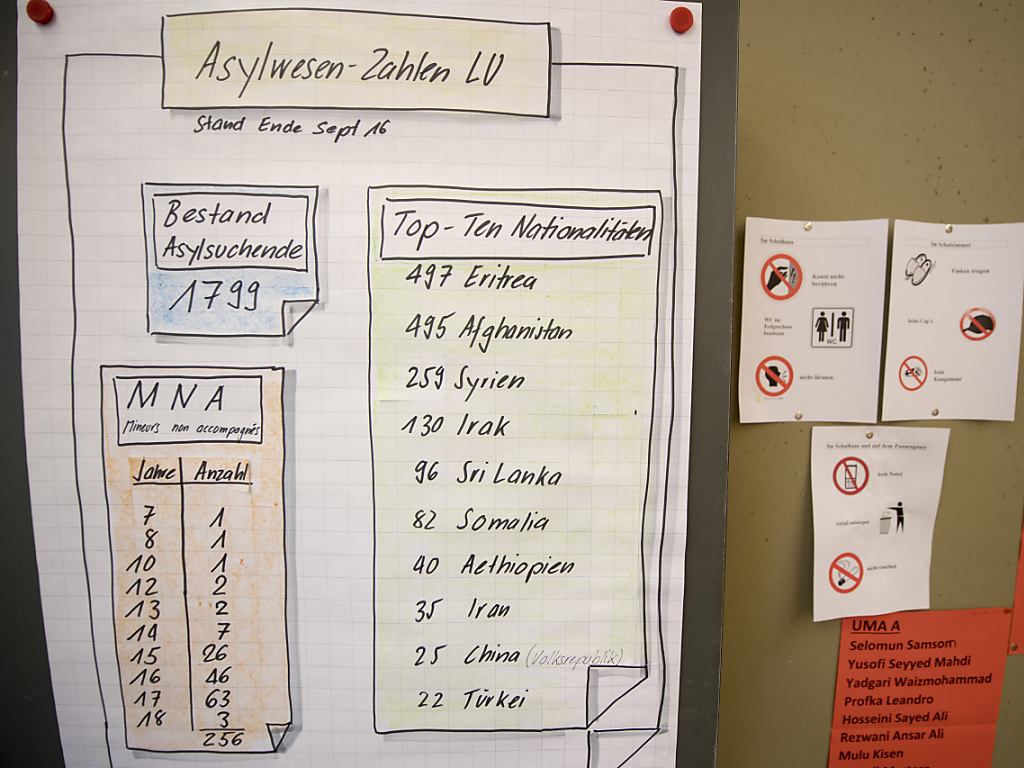 Asylwesen-Zahlen LU
Stand Ende Sept 16
Bestand
Asylsuchende
1799
MNA
Mineurs non accompagnés
Jahre Anzahl
7 1
8 1
10 1
12 2
13 2
14 7
15 26
16 46
17 63
18 3
256
Top-Ten Nationalitäten
497 Eritrea
495 Afghanistan
259 Syrien
130 Irak
96 Sri Lanka
82 Somalia
40 Aethiopien
35 Iran
25 China (Volksrepublik)
22 Türkei
Im Schulhaus
Kunst nicht
berühren
WC im
Erdgeschoss
benützen
WC
nicht lärmen
Im Schulzimmer
Finken tragen
keine Cap's
kein
Kaugummi
Im Schulhaus und auf dem Pausenplatz
kein Natel
Abfall entsorgen
nicht rauchen
UMA A
Selomun Samson
Yusofi Seyyed Mahdi
Yadgari Waizmohammad
Profka Leandro
Hosseini Sayed Ali
Rezwani Ansar Ali
Mulu Kisen